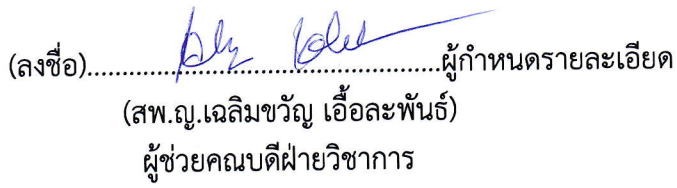 (ลงชื่อ)..................................................ผู้กำหนดรายละเอียด
(สพ.ญ.เฉลิมขวัญ เอื้อละพันธ์)
ผู้ช่วยคณบดีฝ่ายวิชาการ